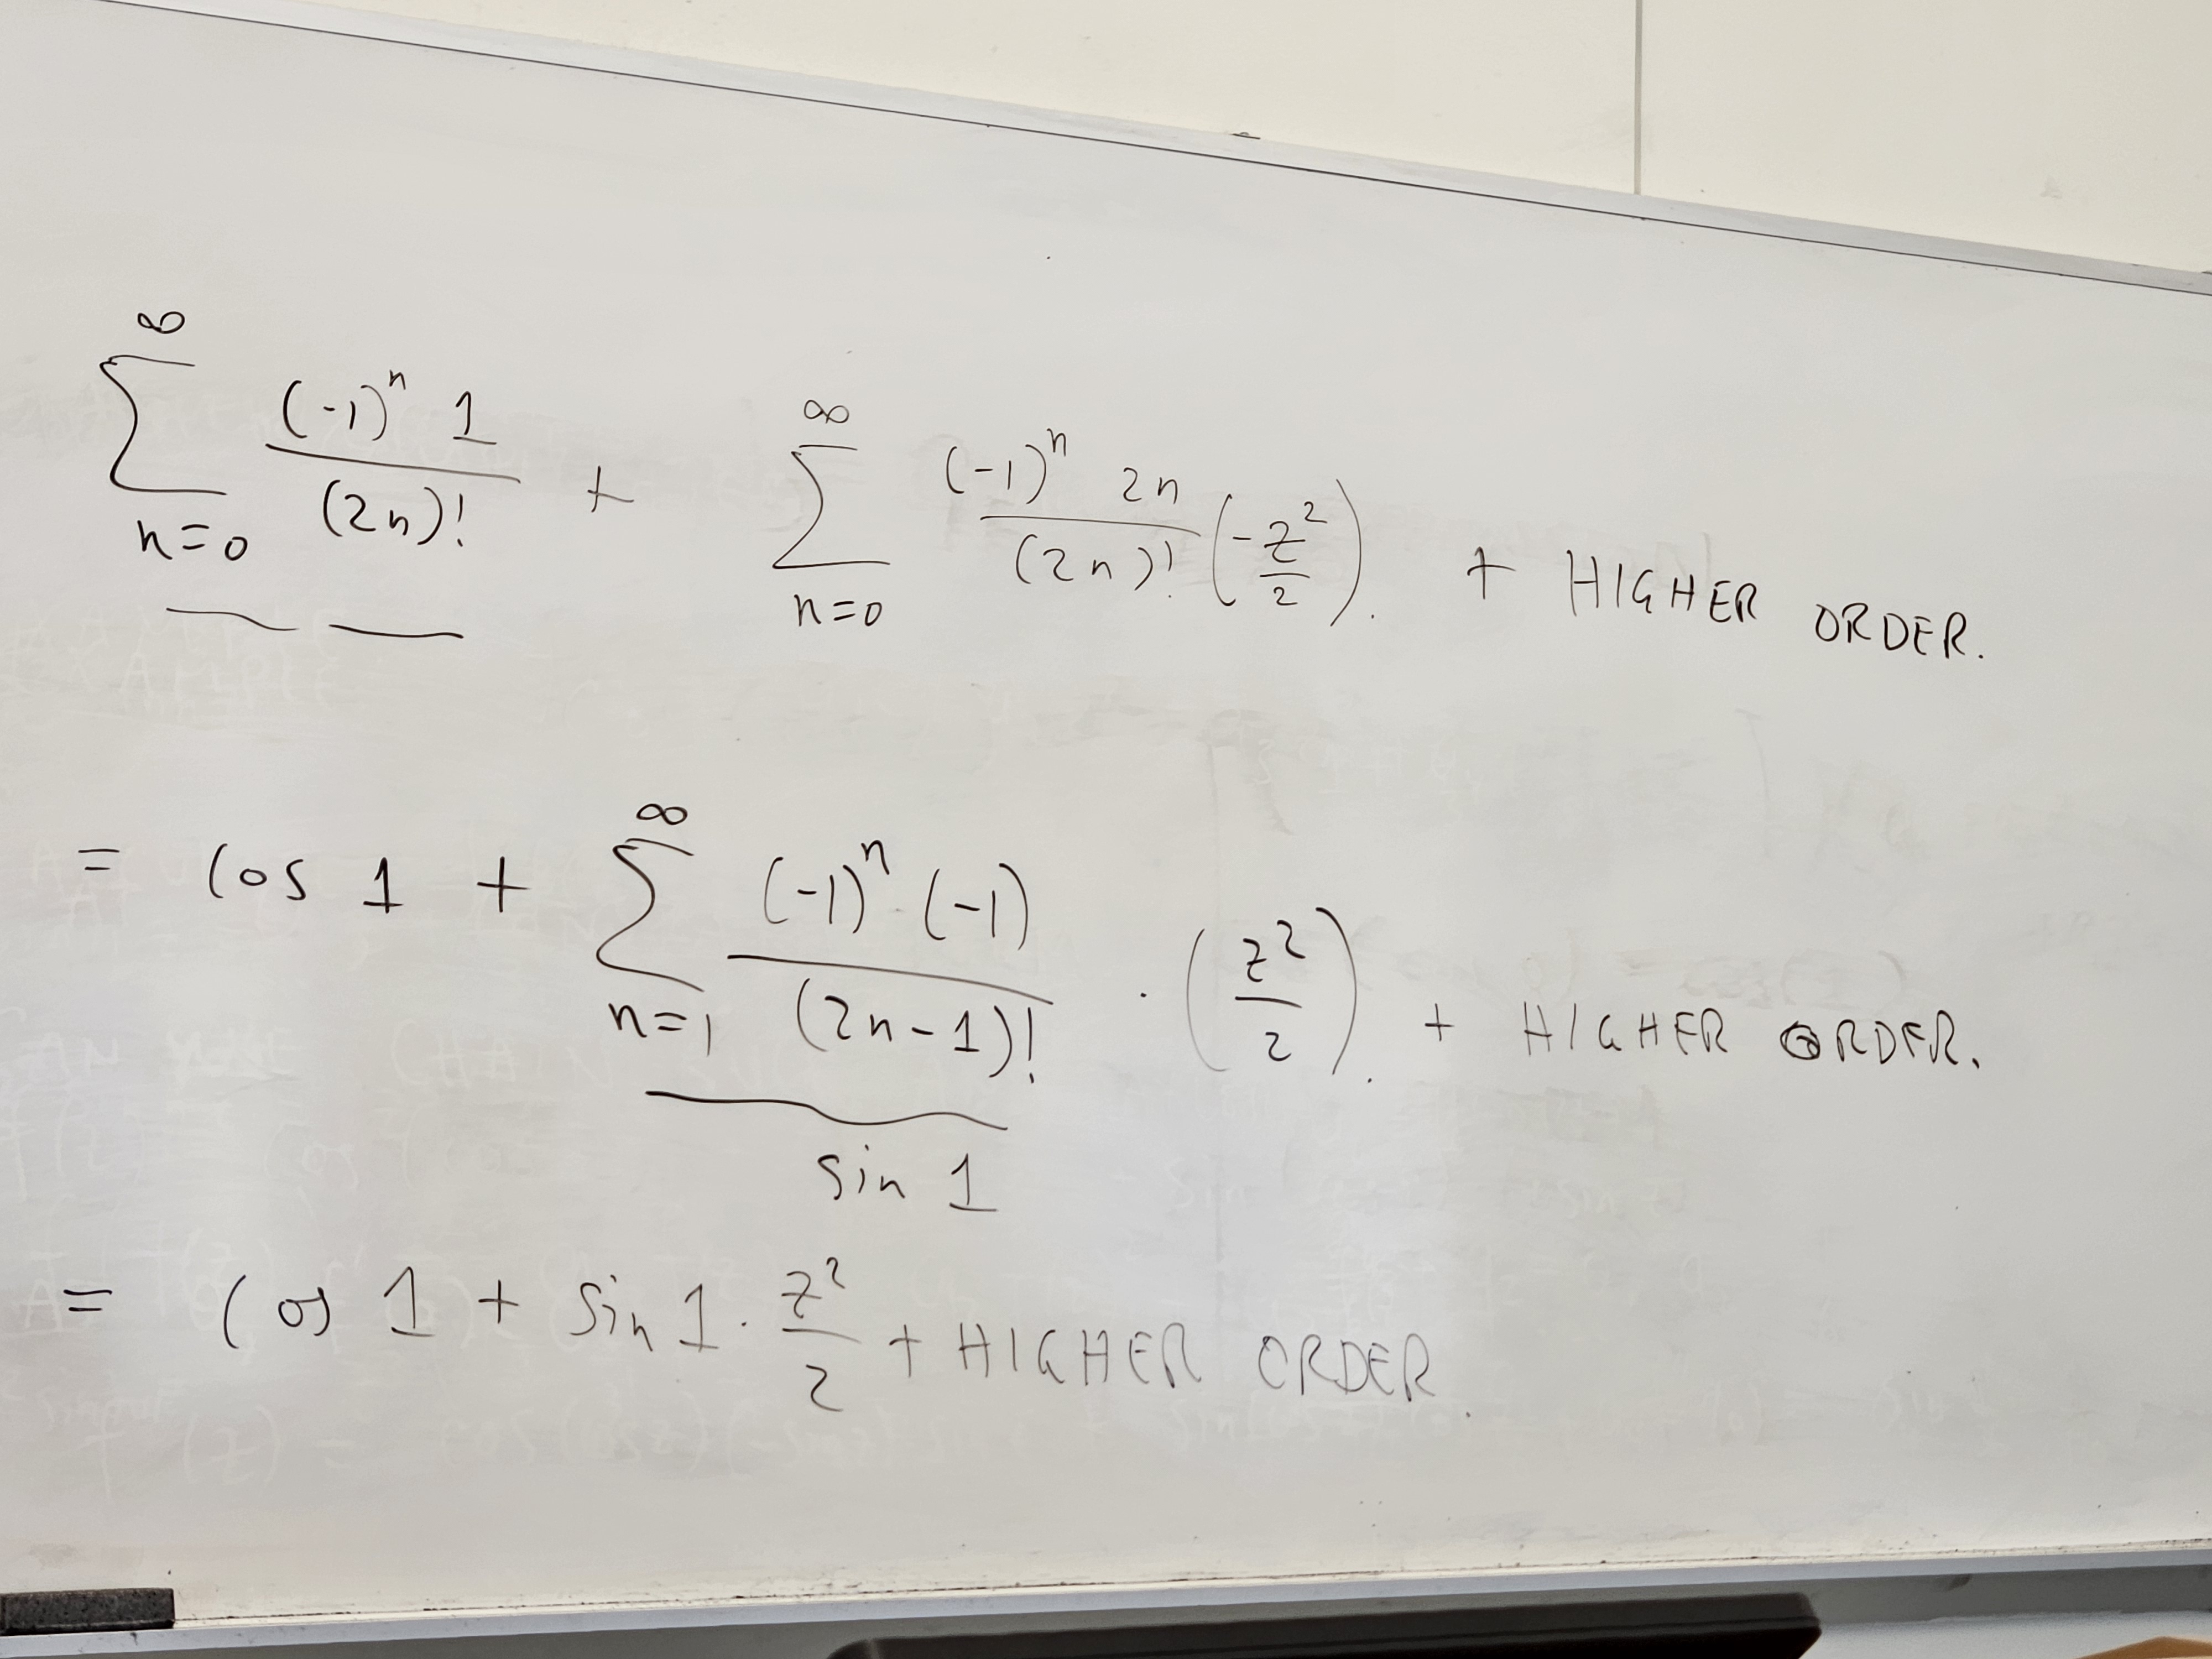 ∑_{n=0}^{∞} \frac{(-1)^n 1}{(2n)!} + ∑_{n=0}^{∞} \frac{(-1)^n 2n}{(2n)!} (-\frac{z^2}{2}). + HIGHER ORDER.
= cos 1 + ∑_{n=1}^{∞} \frac{(-1)^n (-1)}{(2n-1)!} · (\frac{z^2}{2}). + HIGHER ORDER.
sin 1
= cos 1 + sin 1 · \frac{z^2}{2} + HIGHER ORDER.